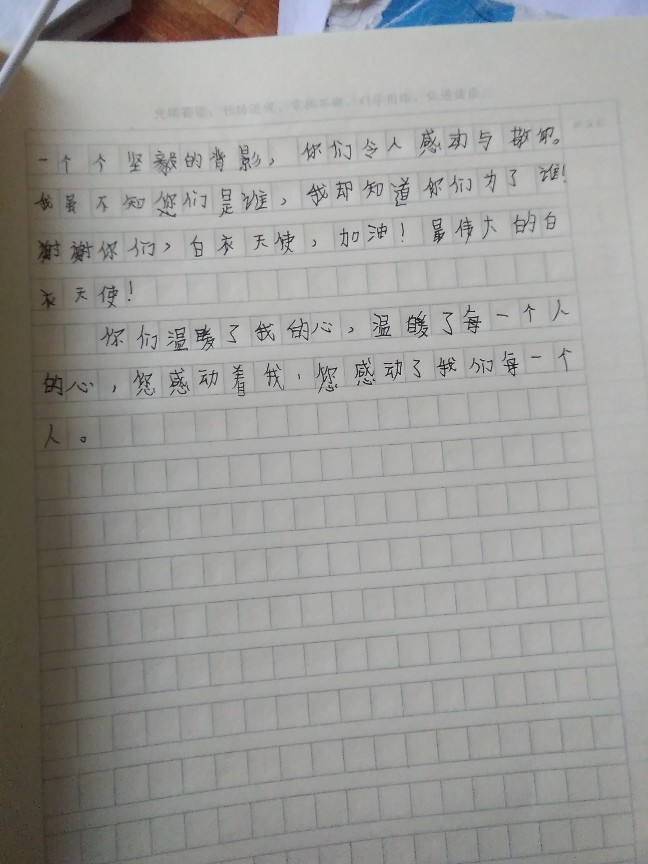 一个个坚毅的背影，你们令人感动与敬佩。
我虽不知您们是谁，我却知道你们为了谁！
谢谢你们，白衣天使，加油！最伟大的白
衣天使！
你们温暖了我的心，温暖了每一个人
的心，您感动着我，您感动了我们每一个
人。